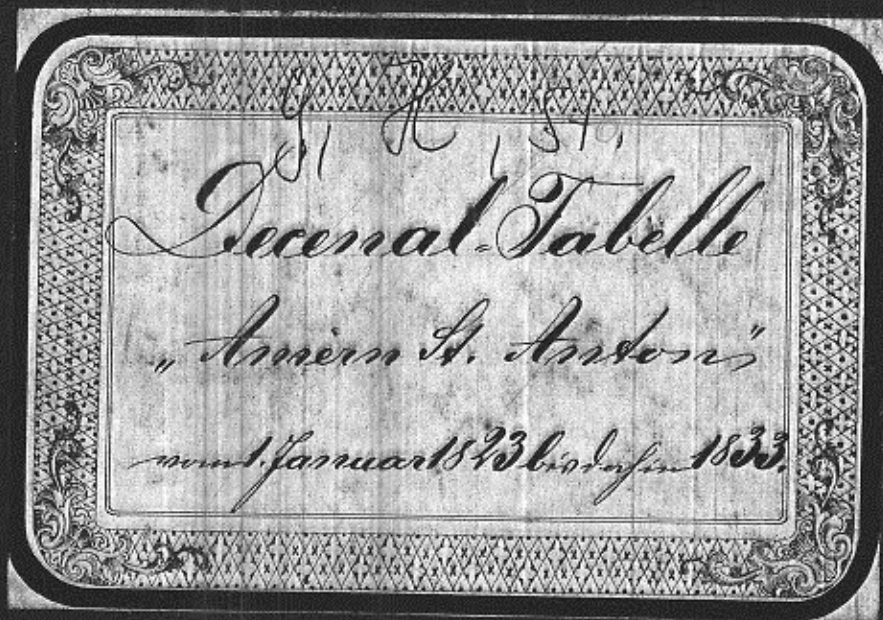 Decenal-Tabelle
„Amern St. Anton"
vom 1. Januar 1823 bis dahin 1833.